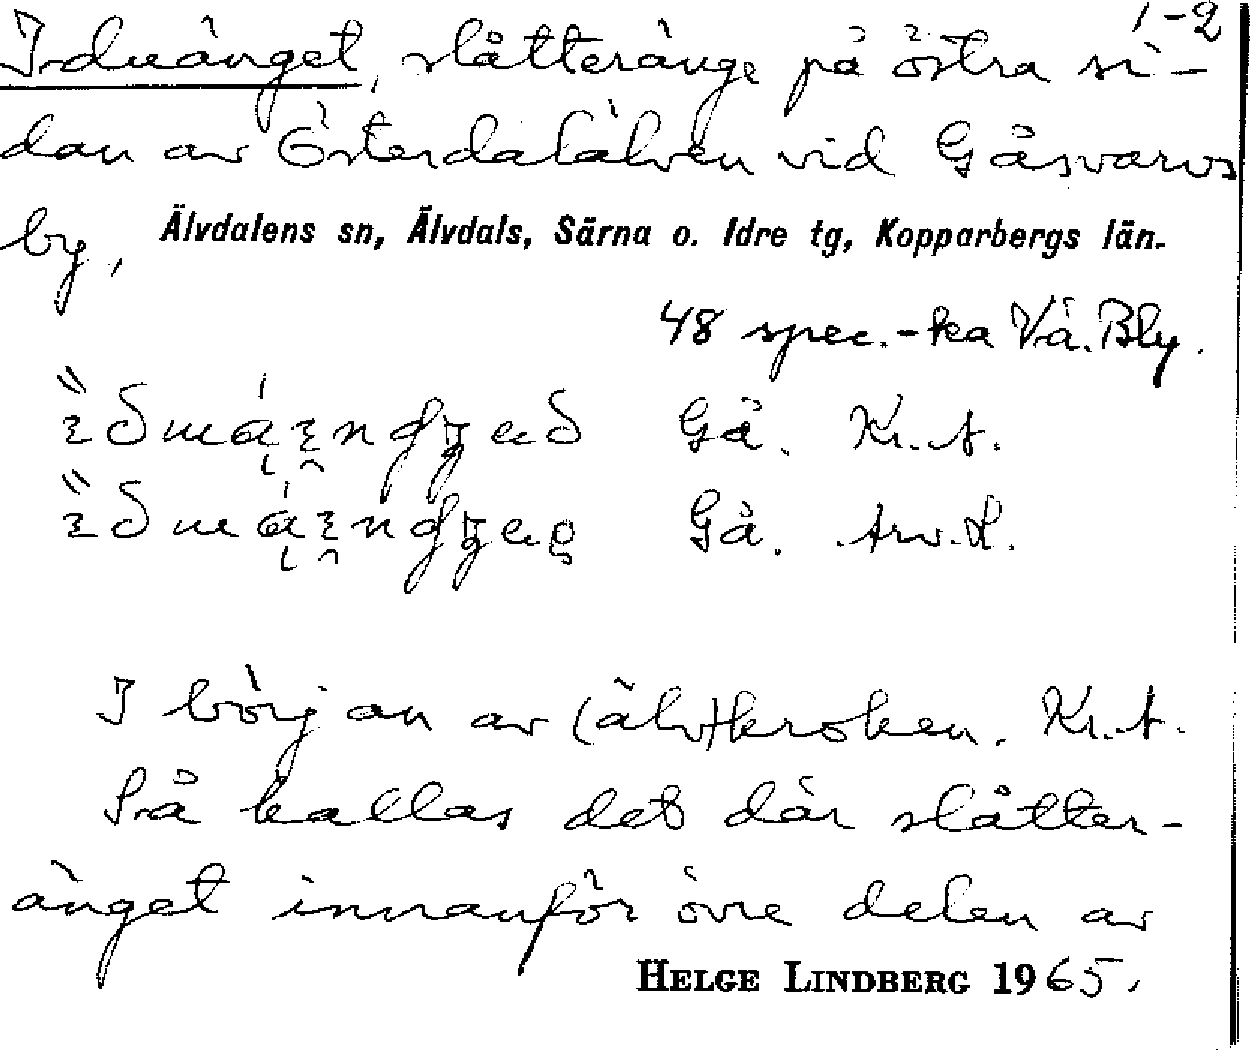 1-2
Iduänget, slåtteränge på östra si-
dan av Österdalälven vid Gåsvarvs
by, Älvdalens sn, Älvdals, Särna o. Idre tg, Kopparbergs län.
48 spec.-ka Vå. Bly.
Gå. Kr. A.
Gå. Arv. L.
I början av (älv)kroken. Kr. A.
Så kallas det där slåtter-
änget innanför övre delen av
HELGE LINDBERG 1965.